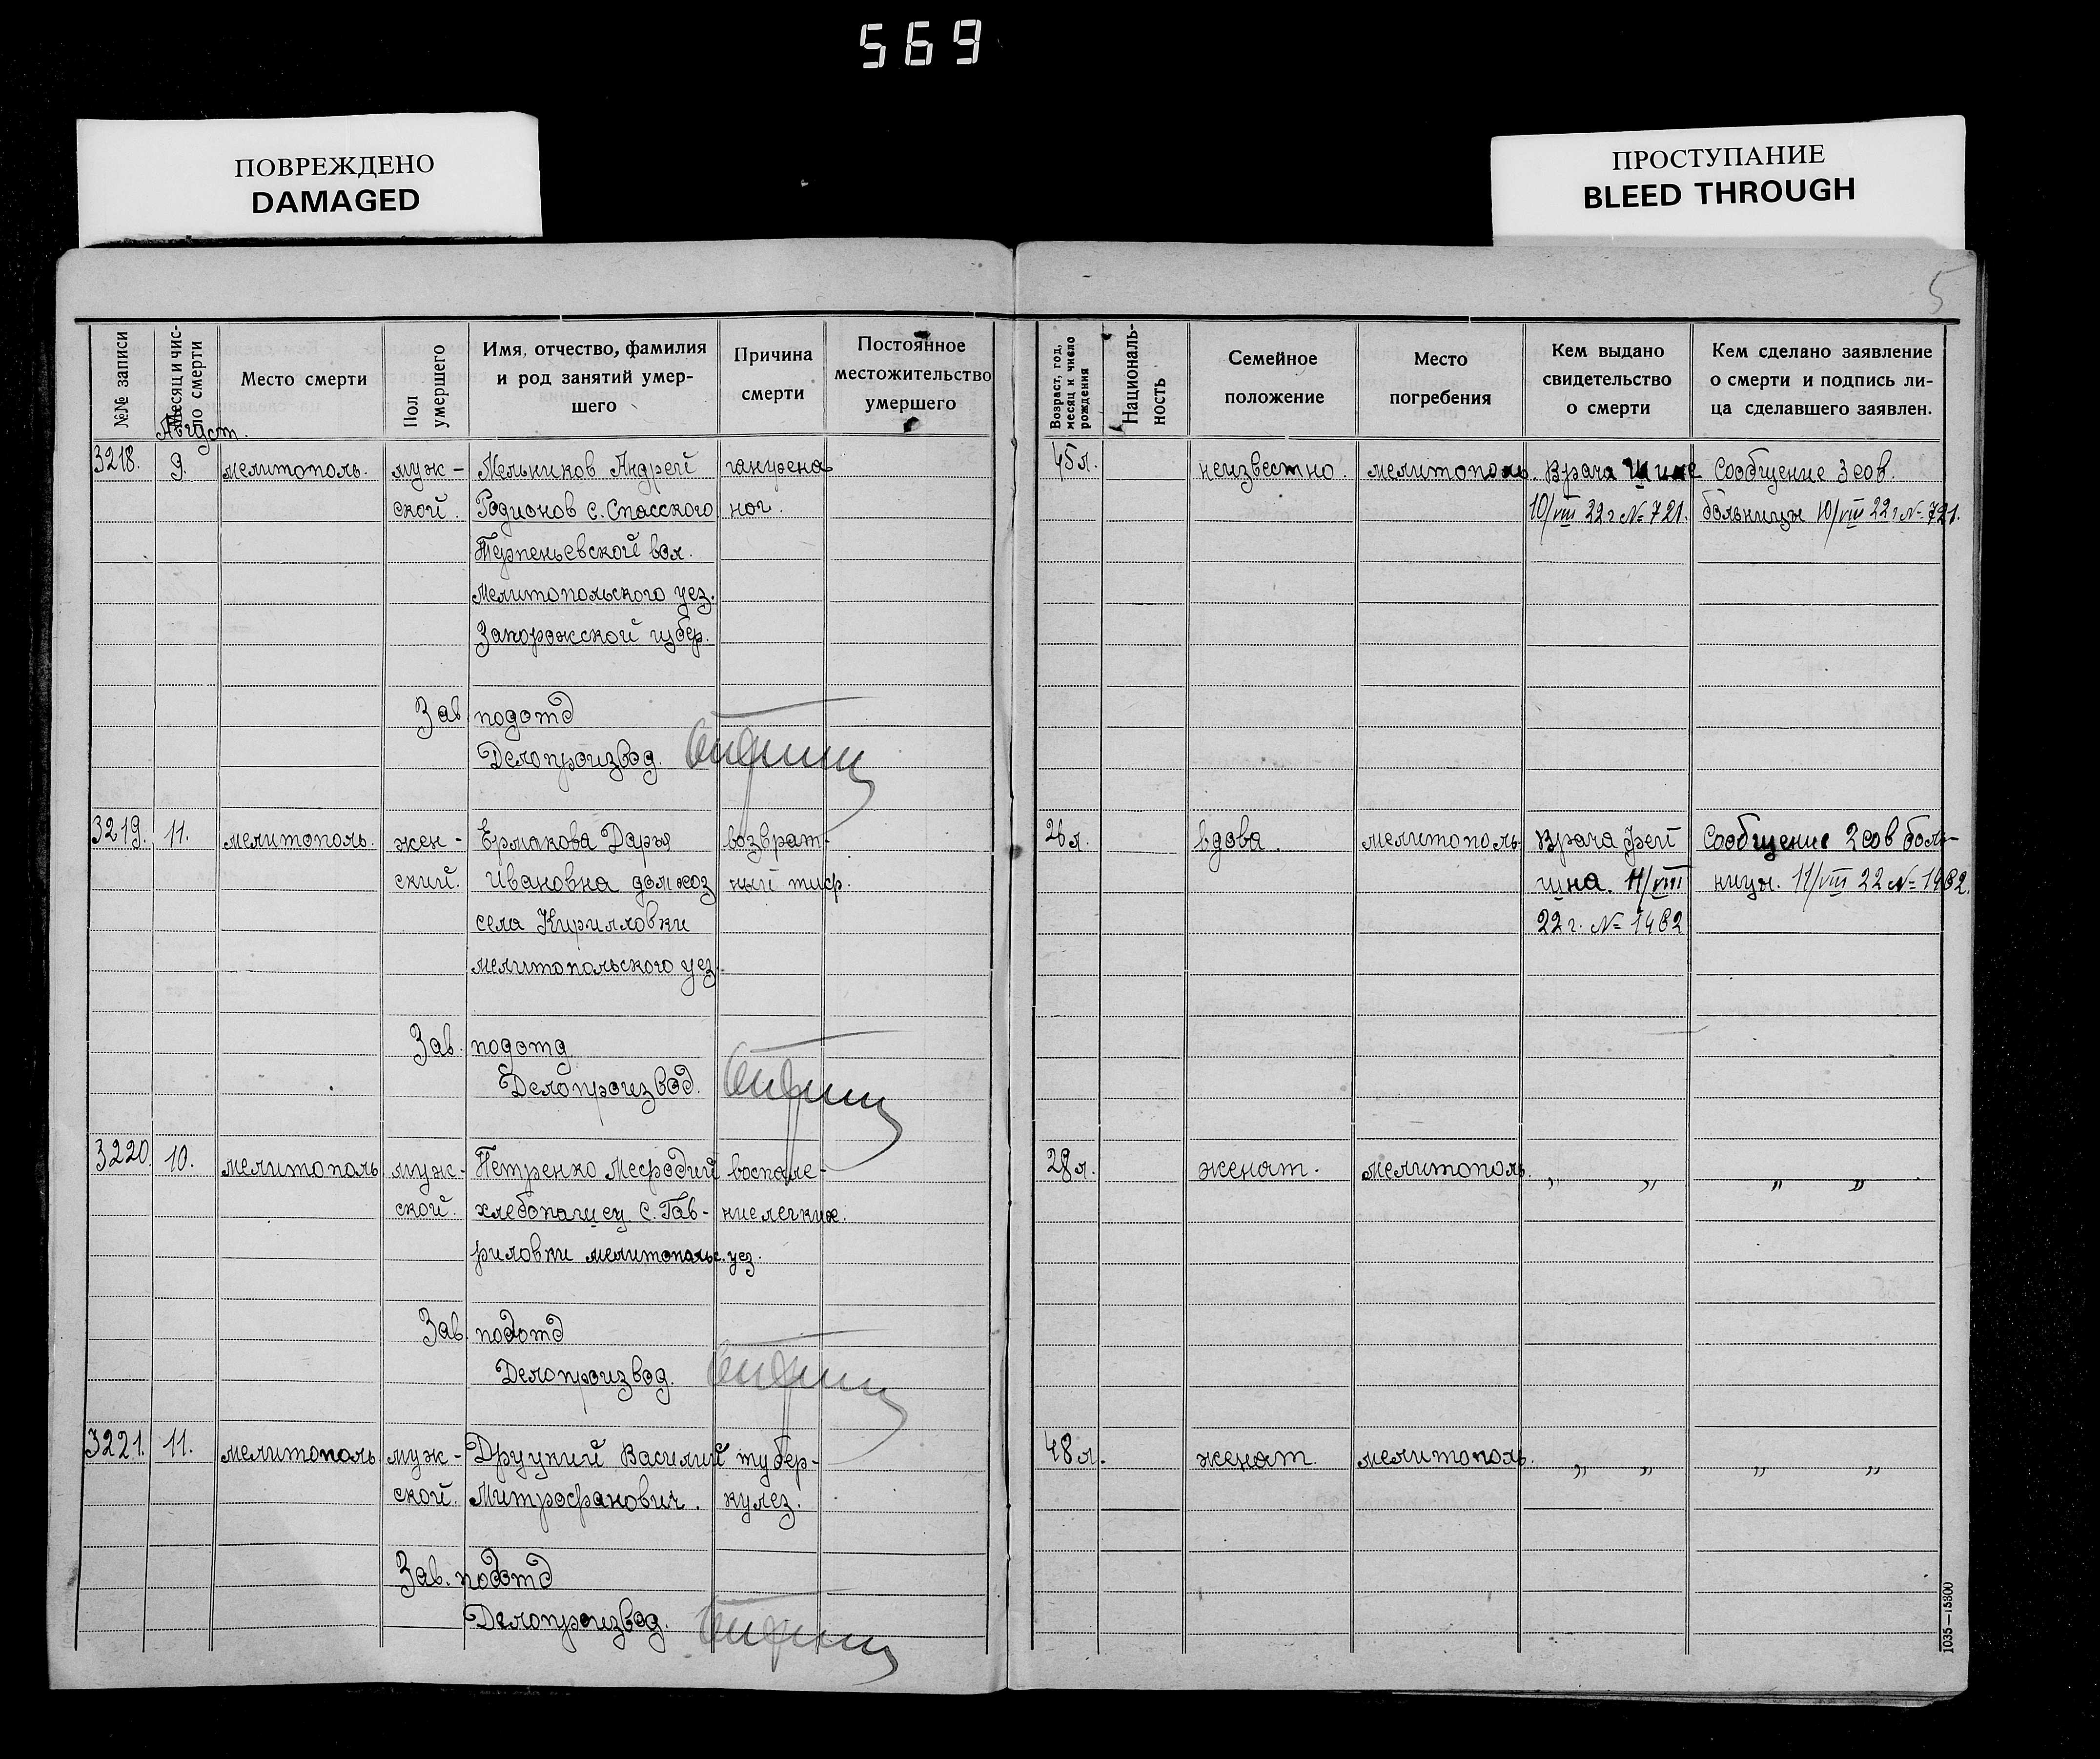 569
ПОВРЕЖДЕНО
DAMAGED
ПРОСТУПАНИЕ
BLEED THROUGH
5
№№ записи
Месяц и чис-
ло смерти
Место смерти
Пол
умершего
Имя, отчество, фамилия
и род занятий умер-
шего
Причина
смерти
Постоянное
местожительство
умершего
Возраст, год,
месяц и число
рождения
Националь-
ность
Семейное
положение
Место
погребения
Кем выдано
свидетельство
о смерти
Кем сделано заявление
о смерти и подпись ли-
ца сделавшего заявлен.
Август.
3218. 9. мелитополь. муж- Мельников Андрей гангрена 45 л. неизвестно. мелитополь. Врача Сообщение 3 сов.
ской. Родионов с. Спасского ног. 10/VIII 22 г № 721. больницы 10/VIII 22 г № 721.
Терпеньевской вол.
мелитопольского уез.
Запорожской губер.
Зав подотд
Делопроизвод.
3219. 11. мелитополь. жен- Ермакова Дарья возврат- 26 л. вдова мелитополь Врача Фей Сообщение 2 сов боль-
ский. Ивановна дом хоз ный тиф. шна. 11/VIII ницы. 11/VIII 22 № 1462.
села Кирилловки 22 г. № 1462
мелитопольского уез.
Зав. подотд
Делопроизвод.
3220 10. мелитополь муж- Петренко Мефодий воспале- 28 л. женат. мелитополь. „ „ „ „
ской. хлебопашец с. Гав- ние легких.
риловки мелитопольс. уез.
Зав. подотд
Делопроизвод.
3221. 11. мелитополь муж- Друцкий Василий тубер- 48 л. женат. мелитополь. „ „ „ „
ской. Митрофанович. кулез.
Зав. подотд
Делопроизвод.
1035—15800